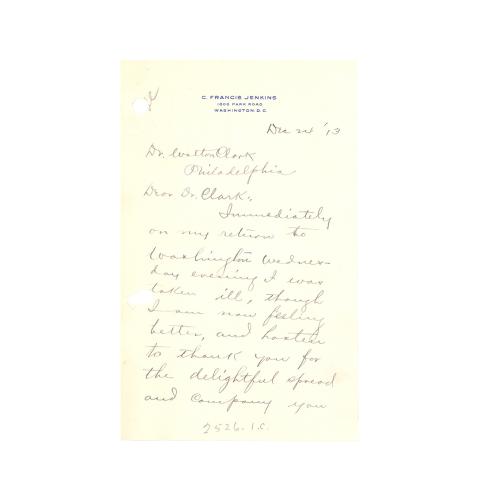 C. FRANCIS JENKINS
1606 PARK ROAD
WASHINGTON D.C.
Dec 24 '13
Dr. Walton Clark
Philadelphia
Dear Dr. Clark:
Immediately
on my return to
Washington Wednes-
day evening I was
taken ill, though
I am now feeling
better, and hasten
to thank you for
the delightful spread
and company you
2526-I.C.